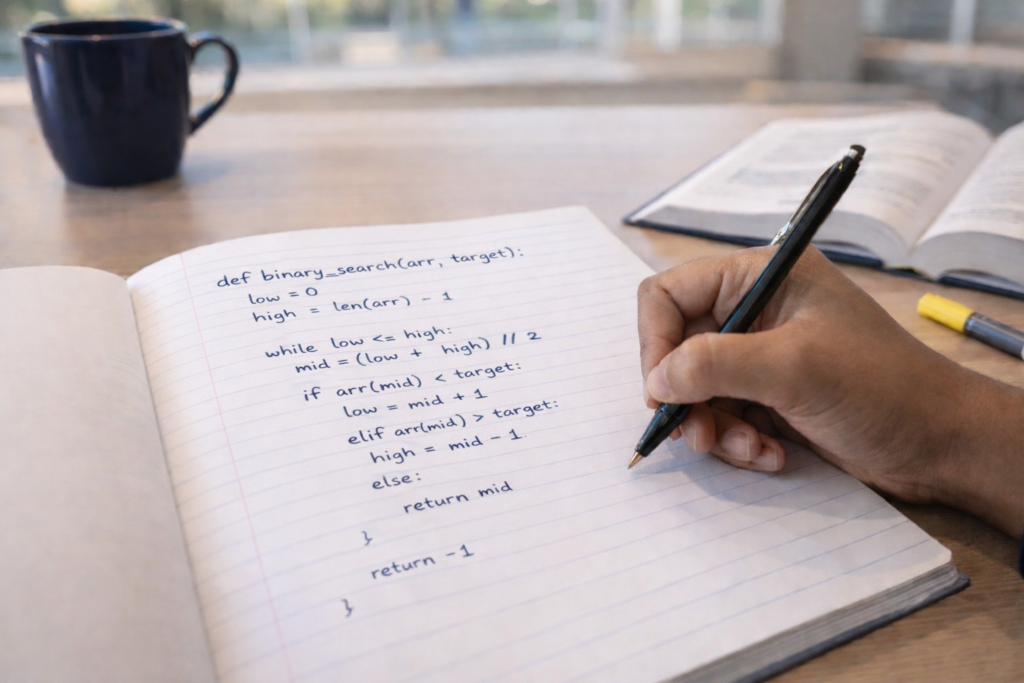 def binary_search(arr, target):
low = 0
high = len(arr) - 1
while low <= high:
mid = (low + high) // 2
if arr(mid) < target:
low = mid + 1
elif arr(mid) > target:
high = mid - 1.
else:
return mid
}
return -1
}